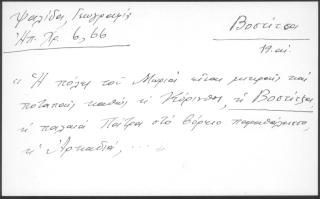 Ψαλίδα, Γεωγραφία
Ηπ. Χρ. 6, 66
Βοστίτσα
19 αι.
« Ἡ πόλη τοῦ Μωριᾶ εἶναι μικρούς καὶ
ποταπούς καθὼς ἡ Κόρινθος, ἡ Βοστίτζα,
ἡ παλαιά Πάτρα στὸ βόρειο παραθαλάσσιο,
ἡ Ἀρκαδιά, ... »